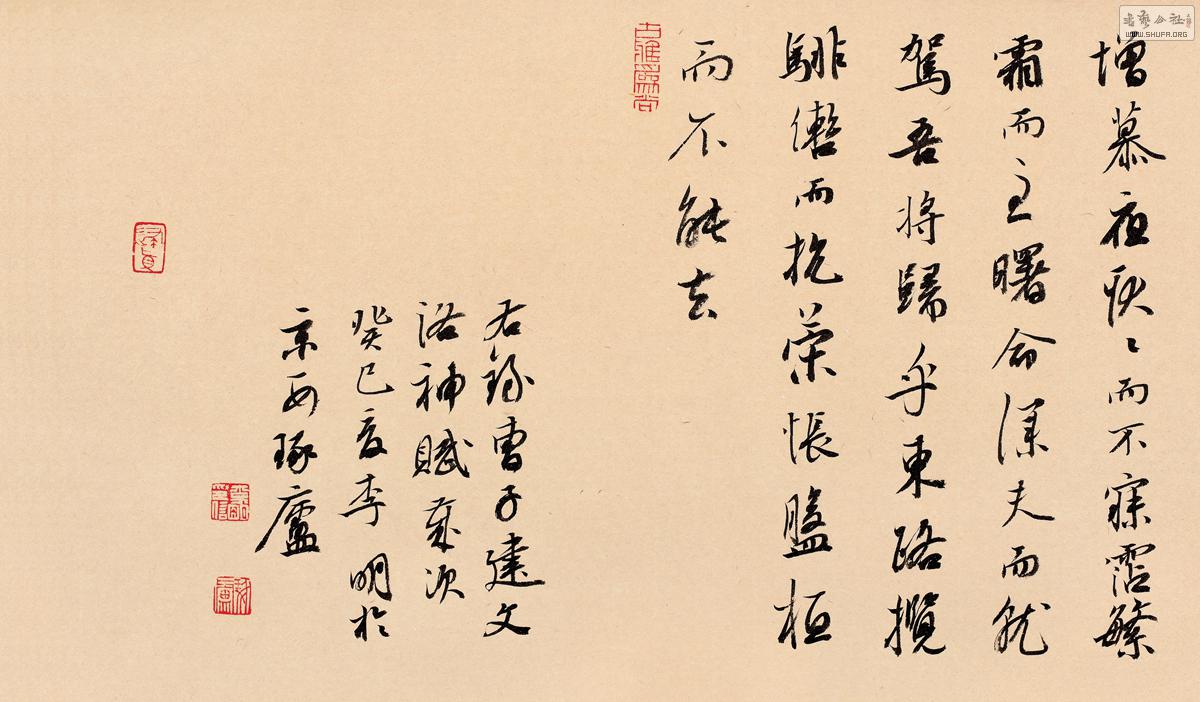 增慕夜耿〻而不寐霑繁
霜而至曙命僕夫而就
駕吾将歸乎東路攬
騑轡而抗策悵盤桓
而不能去
右錄曹子建文
洛神賦歲次
癸巳夏李明於
京西琢廬
WWW.SHUFA.ORG